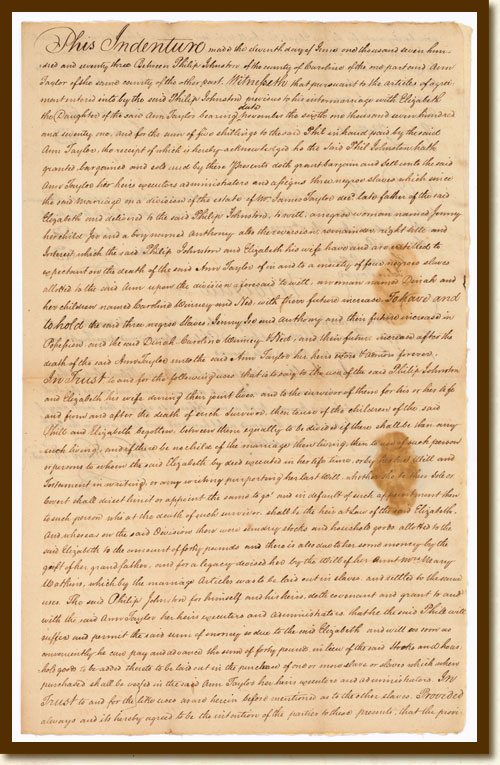 This Indenture made the eleventh day of June one thousand seven hun-
dred and seventy three Between Philip Johnston of the county of Caroline of the one part and Ann
Taylor of the same county of the other part. Witnesseth that pursuant to the articles of agree
ment entered into by the said Philip Johnston previous to his intermarriage with Elizabeth
the Daughter of the said Ann Taylor bearing date November the sixth one thousand seven hundred
and seventy one, and for the sum of five shillings to the said Phil in hand paid by the said
Ann Taylor, the receipt of which is hereby acknowledged he the said Phil Johnston hath
granted bargained and sold and by these Presents doth grant bargain and sell unto the said
Ann Taylor her heirs executors administrators and assigns three negroe slaves which since
the said marriage on a division of the estate of Mr. James Taylor decd. late father of the said
Elizabeth and delivered to the said Philip Johnston, to wit, a negroe woman named Jenny
her child Joe and a boy named Anthony also the reversion remainder right title and
Interest which the said Philip Johnston and Elizabeth his wife have and are entitled to
expectant on the death of the said Ann Taylor of in and to a moiety of four negroe slaves
allotted to the said Ann upon the division aforesaid to wit, a woman named Dinah and
her children named Caroline Winney and Ned, with their future increase To have and
to hold the said three negroe slaves Jenny Joe and Anthony and their future increase in
Possession and the said Dinah Caroline Winney & Ned, and their future increase after the
death of the said Ann Taylor unto the said Ann Taylor her heirs forever.
In Trust to and for the following uses that is to say to the use of the said Philip Johnston
and Elizabeth his wife during their joint lives and to the survivor of them for his or her life
and from and after the death of such Survivor, then to use of the children of the said
Phill and Elizabeth begotten between them equally to be divided if there shall be then any
such living, and if there be no childe of the marriage then living, then to use of such person
or persons to whom the said Elizabeth by deed executed in her life time, or by her last Will and
Testament in writing or any writing purporting her last Will, whether she be then sole or
Covert shall direct limit or appoint the same to go and in default of such appointment then
to such person who at the death of such survivor shall be the heir at Law of the said Elizabeth.
And whereas on the said Division there were sundry stocks and houshold goods allotted to the
said Elizabeth to the amount of forty pounds and there is also due to her some money by the
gift of her grandfather, and for a legacy devised her by the Will of her Aunt Mrs. Mary
which by the marriage Articles was to be laid out in slaves, and settled to the same
uses The said Philip Johnston for himself and his heirs, doth covenant and grant to and
with the said Ann Taylor her heirs executors and administrators that he the said Phill will
suffer and permit the said sum of money so due to the said Elizabeth and will as soon as
conveniently he can pay and advance the sum of forty pounds in lieu of the said stocks and hous
hold goods to be added thereto to be laid out in the purchase of one or more slave or slaves which when
purchased shall be vested in the said Ann Taylor her heirs executors and administrators In
Trust to and for the like uses as are herein before mentioned as to the other slaves. Provided
always and it is hereby agreed to be the intention of the parties to these presents, that the